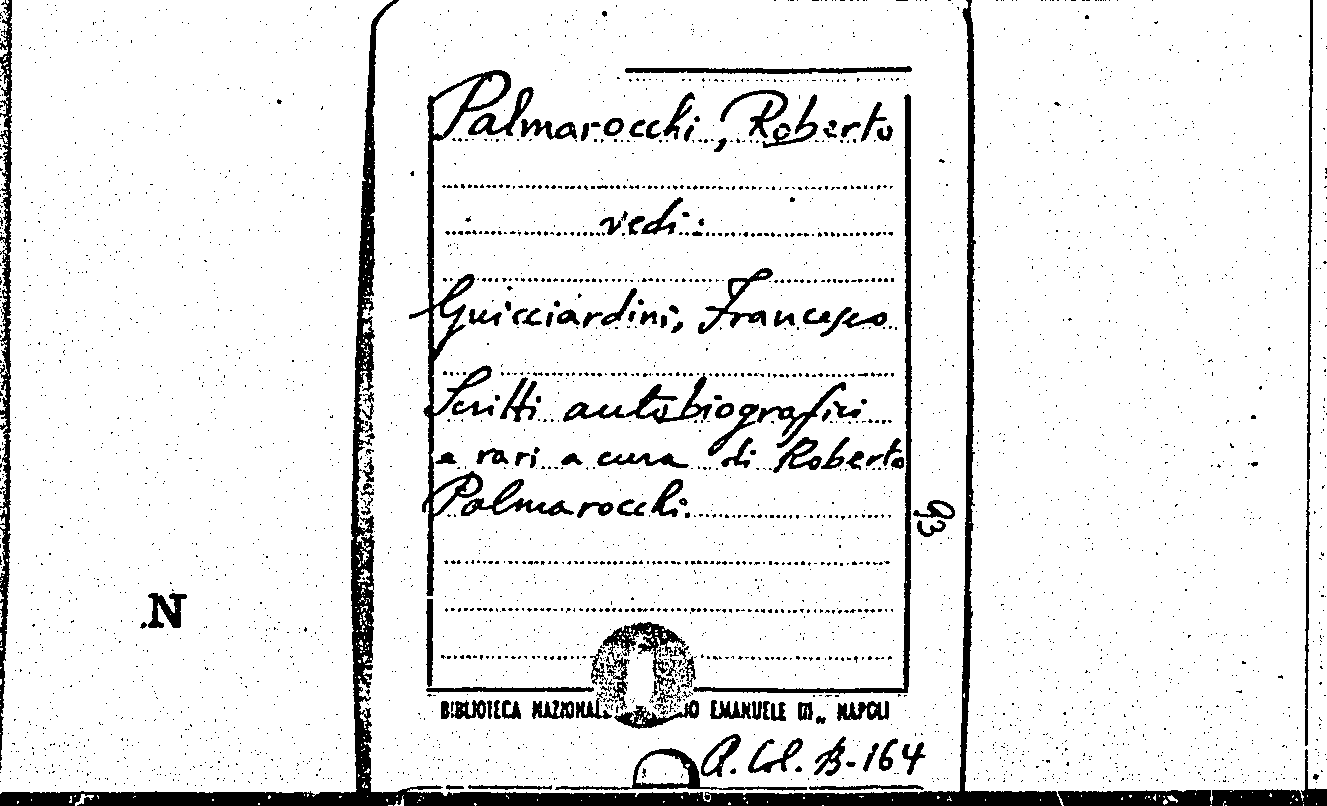 Palmarocchi, Roberto
vedi:
Guicciardini, Francesco
Scritti autobiografici
e rari a cura di Roberto
Palmarocchi.
93
.N
BIBLIOTECA NAZIONAL IO EMANUELE III„ NAPOLI
B-164